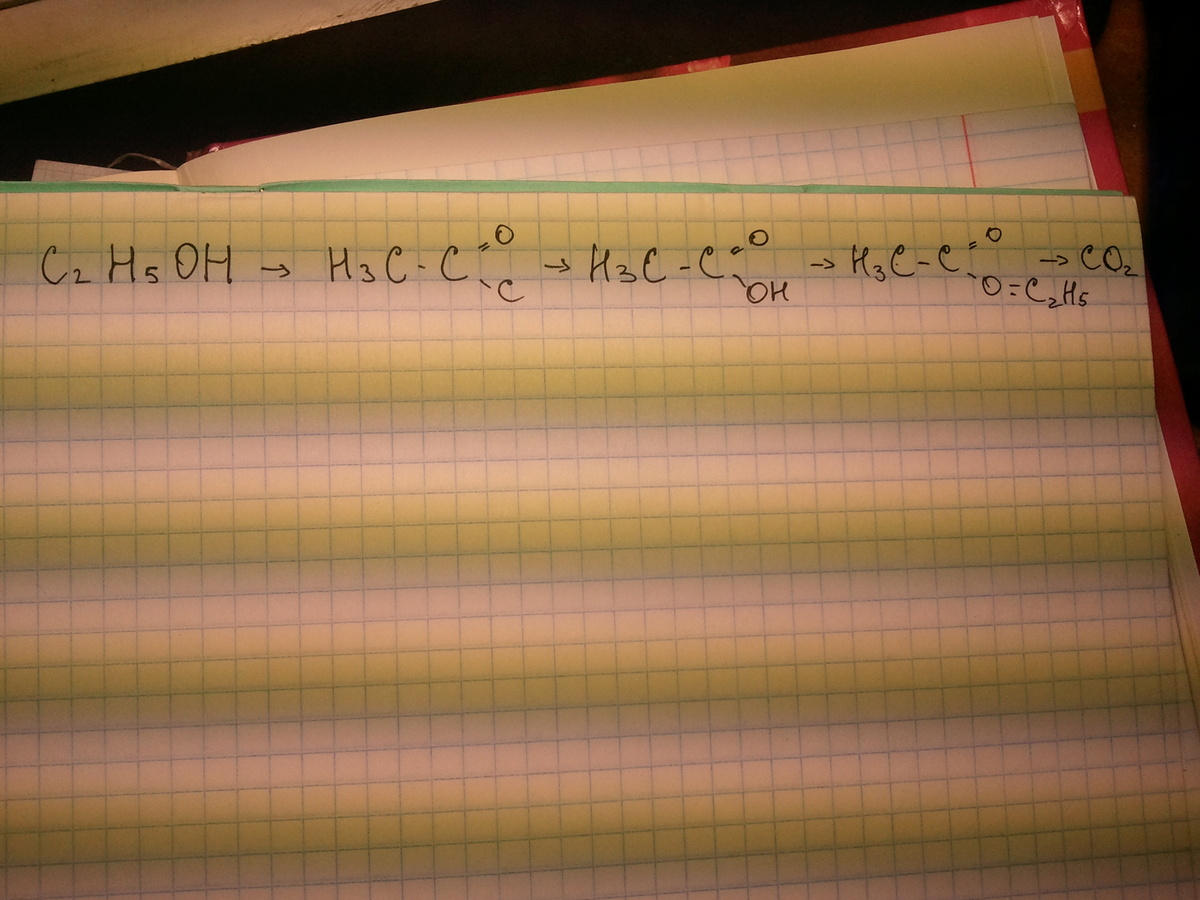 C₂H₅OH → H₃C-C(=O)-C → H₃C-C(=O)-OH → H₃C-C(=O)-O=C₂H₅ → CO₂